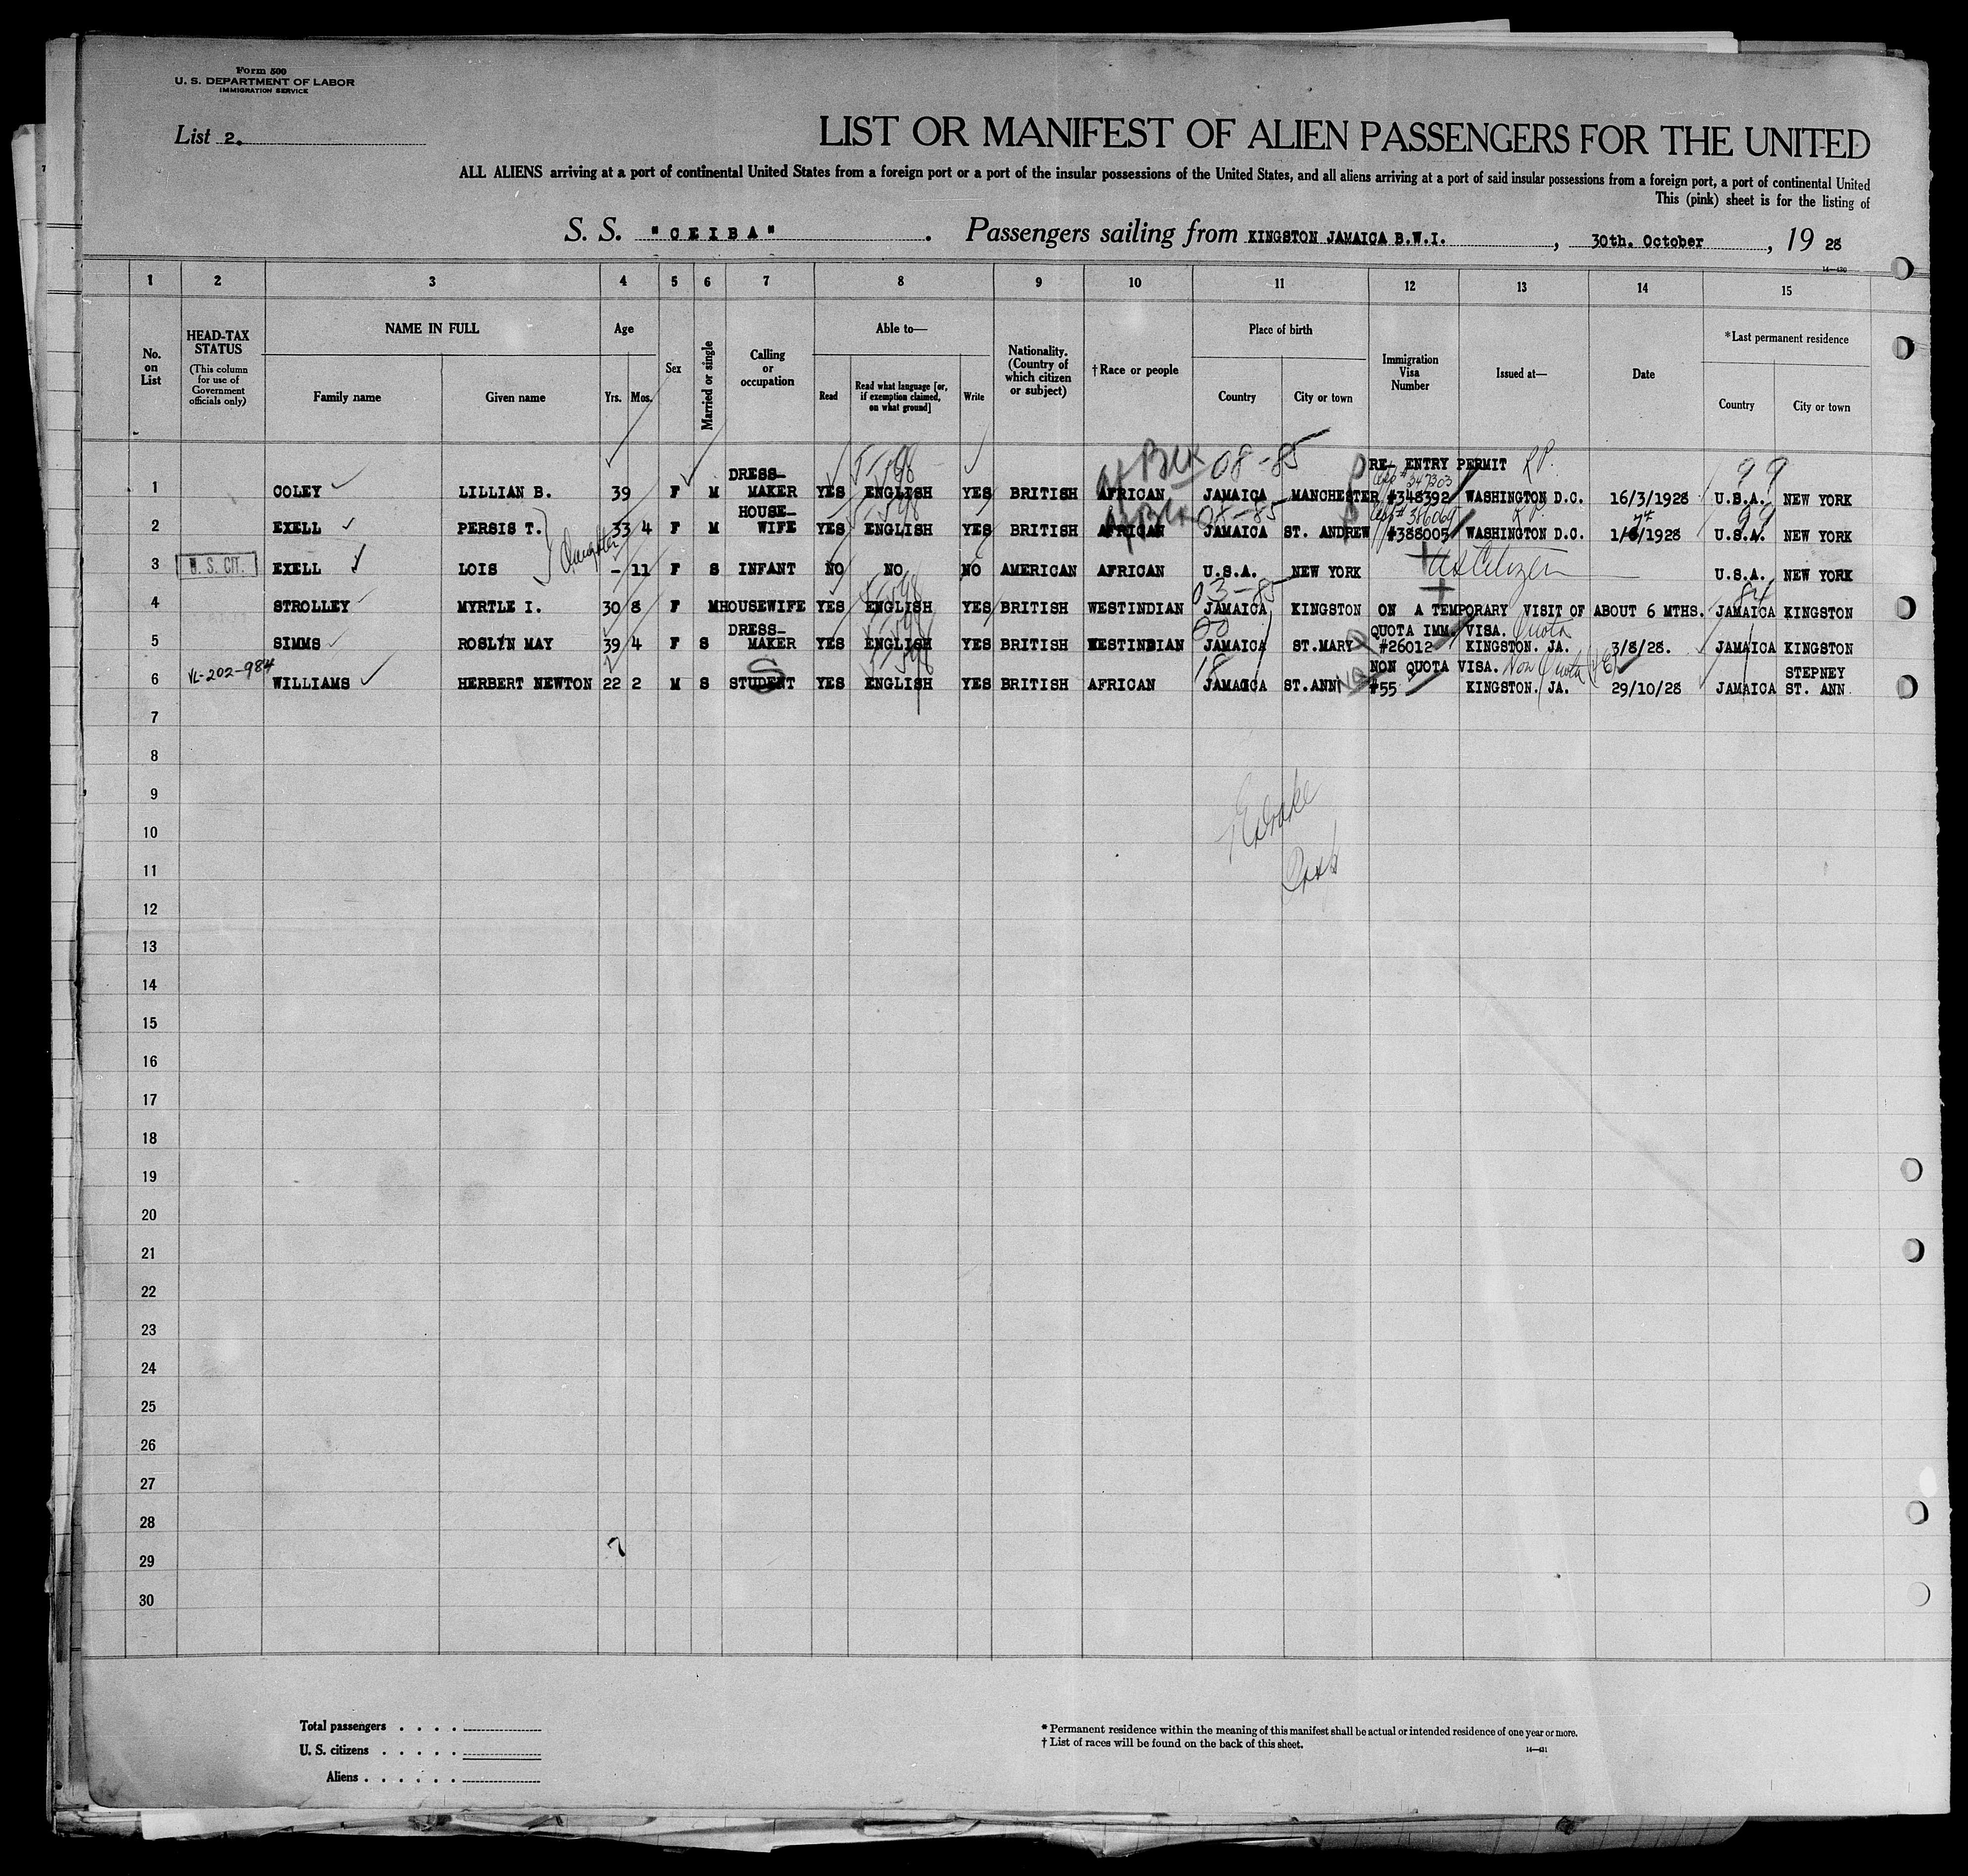 Form 500
U. S. DEPARTMENT OF LABOR
IMMIGRATION SERVICE
List 2.
LIST OR MANIFEST OF ALIEN PASSENGERS FOR THE UNITED
ALL ALIENS arriving at a port of continental United States from a foreign port or a port of the insular possessions of the United States, and all aliens arriving at a port of said insular possessions from a foreign port, a port of continental United
This (pink) sheet is for the listing of
S. S. "CEIBA". Passengers sailing from KINGSTON JAMAICA B.W.I., 30th. October, 19 28
14—430
1 2 3 4 5 6 7 8 9 10 11 12 13 14 15
No. on List
HEAD-TAX STATUS
(This column for use of Government officials only)
NAME IN FULL
Family name Given name
Age
Yrs. Mos.
Sex
Married or single
Calling or occupation
Able to—
Read
Read what language [or, if exemption claimed, on what ground]
Write
Nationality. (Country of which citizen or subject)
† Race or people
Place of birth
Country City or town
Immigration Visa Number
Issued at—
Date
*Last permanent residence
Country City or town
DRESS- RE- ENTRY PERMIT R.P.
08-85 99
1 COLEY LILLIAN B. 39 F M MAKER YES ENGLISH YES BRITISH AFRICAN JAMAICA MANCHESTER #348392 WASHINGTON D.C. 16/3/1928 U.S.A. NEW YORK
HOUSE-
2 EXELL PERSIS T. 33 4 F M WIFE YES ENGLISH YES BRITISH AFRICAN JAMAICA ST. ANDREW #388005 WASHINGTON D.C. 1/ /1928 U.S.A. NEW YORK
Daughter
3 U. S. CIT. EXELL LOIS - 11 F S INFANT NO NO NO AMERICAN AFRICAN U.S.A. NEW YORK US Citizen U.S.A. NEW YORK
03-85 84
4 STROLLEY MYRTLE I. 30 8 F M HOUSEWIFE YES ENGLISH YES BRITISH WESTINDIAN JAMAICA KINGSTON ON A TEMPORARY VISIT OF ABOUT 6 MTHS. JAMAICA KINGSTON
DRESS- QUOTA IMM. VISA. Quota
5 SIMMS ROSLYN MAY 39 4 F S MAKER YES ENGLISH YES BRITISH WESTINDIAN JAMAICA ST.MARY #26012 KINGSTON. JA. 3/8/28. JAMAICA KINGSTON
VL-202-984 S 18 NON QUOTA VISA. Non Quota STEPNEY
6 WILLIAMS HERBERT NEWTON 22 2 M S STUDENT YES ENGLISH YES BRITISH AFRICAN JAMAICA ST.ANN #55 KINGSTON. JA. 29/10/28 JAMAICA ST. ANN
7
8
9
10
11
12
13
14
15
16
17
18
19
20
21
22
23
24
25
26
27
28
29
30
Total passengers . . . .
U. S. citizens . . . . .
Aliens . . . . . .
* Permanent residence within the meaning of this manifest shall be actual or intended residence of one year or more.
† List of races will be found on the back of this sheet.
14—431